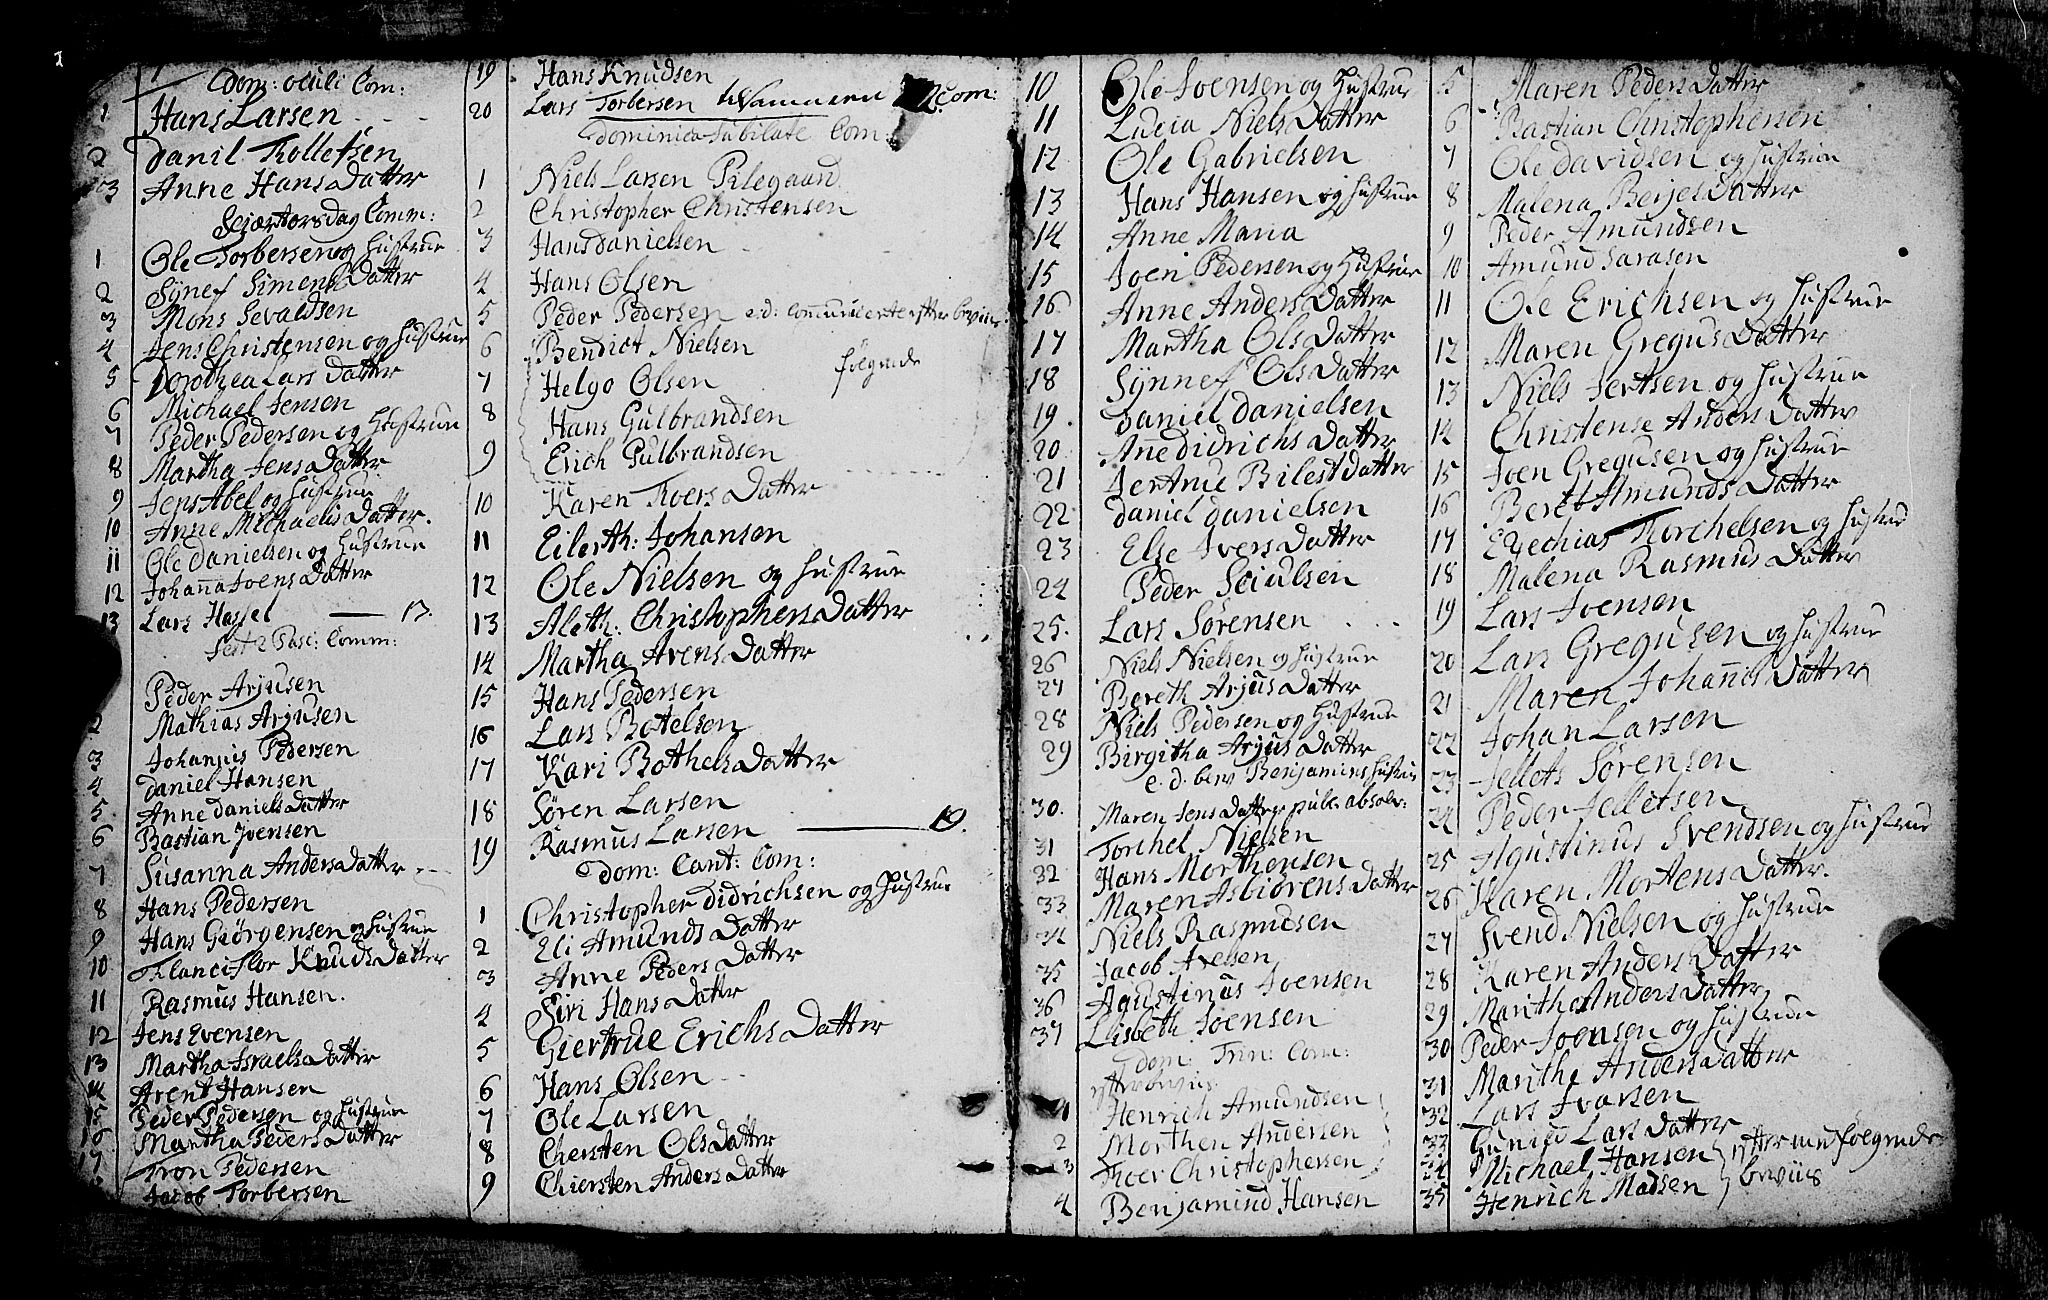 Dom: oculi Com:
1 Hans Larsen
2 Danil Tolletsen
3 Anne Hans Datter
Schærtorsdag Comm:
1 Ole Torbersen og Hustrue
2 Synef Simens Datter
3 Mons Sevaldsen
4 Jens Christensen og Hustrue
5 Dorothea Lars Datter
6 Michael Jensen
7 Peder Pedersen og Hustrue
8 Martha Jens Datter
9 Jens Abel og Hustrue
10 Anne Michaelis Datter.
11 Ole Danielsen og Hustrue
12 Johanna Joens Datter
13 Lars Hassel — 13.
Fest 2 Pasc: Comm:
Peder Arjusen
2 Mathias Arjusen
3 Johannis Pedersen
4 Daniel Hansen
5 Anne Daniels Datter
6 Bastian Jvensen
7 Susanna Anders Datter
8 Hans Pedersen
9 Hans Giörgensen og Hustrue
10 Knuds Datter
11 Rasmus Hansen.
12 Jens Evensen
13 Martha Israels Datter
14 Arent Hansen
15 Peder Pedersen og Hustrue
16 Martha Peders Datter
17 Tron Pedersen
Jacob Torbersen
19 Hans Knudsen
20 Lars Torbersen Com:
Dominica Jubilate Com:
1 Niels Larsen Pilegaard
2 Christopher Christensen
3 Hans Danielsen
4 Hans Olsen
5 Peder Pedersen e.d: Communicerte efter beviis
6 Bendict Nielsen
følgende
7 Helgo Olsen
8 Hans Gulbrandsen
9 Erich Gulbrandsen
10 Karen Thoers Datter
11 Eilerth: Johansen
12 Ole Nielsen og Hustrue
13 Aleth: Christophers Datter
14 Martha Avens Datter
15 Hans Pedersen
16 Lars Botelsen
17 Kari Bothels Datter
18 Sören Larsen
19 Rasmus Larsen — 19.
Dom: Cant: Com:
1 Christopher Didrichsen og Hustrue
2 Eli Amunds Datter
3 Anne Peders Datter
4 Siri Hans Datter
5 Giertrue Erichs Datter
6 Hans Olsen
7 Ole Larsen
8 Chersten Ols Datter
9 Chiersten Anders Datter
10 Ole Joensen og Hustrue
11 Lucia Niels Datter
12 Ole Gabrielsen
13 Hans Hansen og Hustrue
14 Anne Maria
15 Joen Pedersen og Hustrue
16 Anne Anders Datter
17 Martha Ols Datter
18 Synnef Ols Datter
19 Daniel Danielsen
20 Anne Didrichs Datter
21 Jertrue Bilest Datter
22 Daniel Danielsen
23 Else Jvers Datter
24 Peder
25. Lars Sörensen
26 Niels Nielsen og Hustrue
27 Bereth Arjus Datter
28 Niels Pedersen og Hustrue
29 Birgitha Arjus Datter
e. d. bev Benjamins Hustrue
30. Maren Jens Datter publ: absolv:
31 Torchel Nielsen
32 Hans Morthensen
33 Maren Asbiörens Datter
34 Niels Rasmusen
35 Jacob Avelsen
36 Agustinus Joensen
37 Lisbeth Joensen
Dom: Trin: Com:
efter beviis
1 Henrich Amundsen
2 Morthen Andersen
3 Thoer Christophersen
4 Benjamind Hansen
5 Maren Peders Datter
6 Bastian Christophersen
7 Ole Davidsen og Hustrue
8 Malena Berjes Datter
9 Peder Amundsen
10 Amund Sarasen
11 Ole Erichsen og Hustrue
12 Maren Gregus Datter
13 Niels Jertsen og Hustrue
14 Christense Anders Datter
15 Joen Gregusen og Hustrue
16 Beret Amunds Datter
17 Ezechias Torchelsen og Hustrue
18 Malena Rasmus Datter
19 Lars Joensen
20 Lars Gregusen og Hustrue
21 Maren Johannis Datter
22 Johan Larsen
23 Jellets Sörensen
24 Peder Jelletsen
25 Agustinus Svendsen og Hustrue
26 Karen Mortens Datter.
27 Svend Nielsen og Hustrue
28 Karen Anders Datter
29 Maritha Anders Datter
30 Peder Joensen og Hustrue
31 Marithe Anders Datter
32 Lars Ivarsen
33 Gunild Lars Datter
34 Michael Hansen } efter med følgende
35 Henrich Madsen } beviis